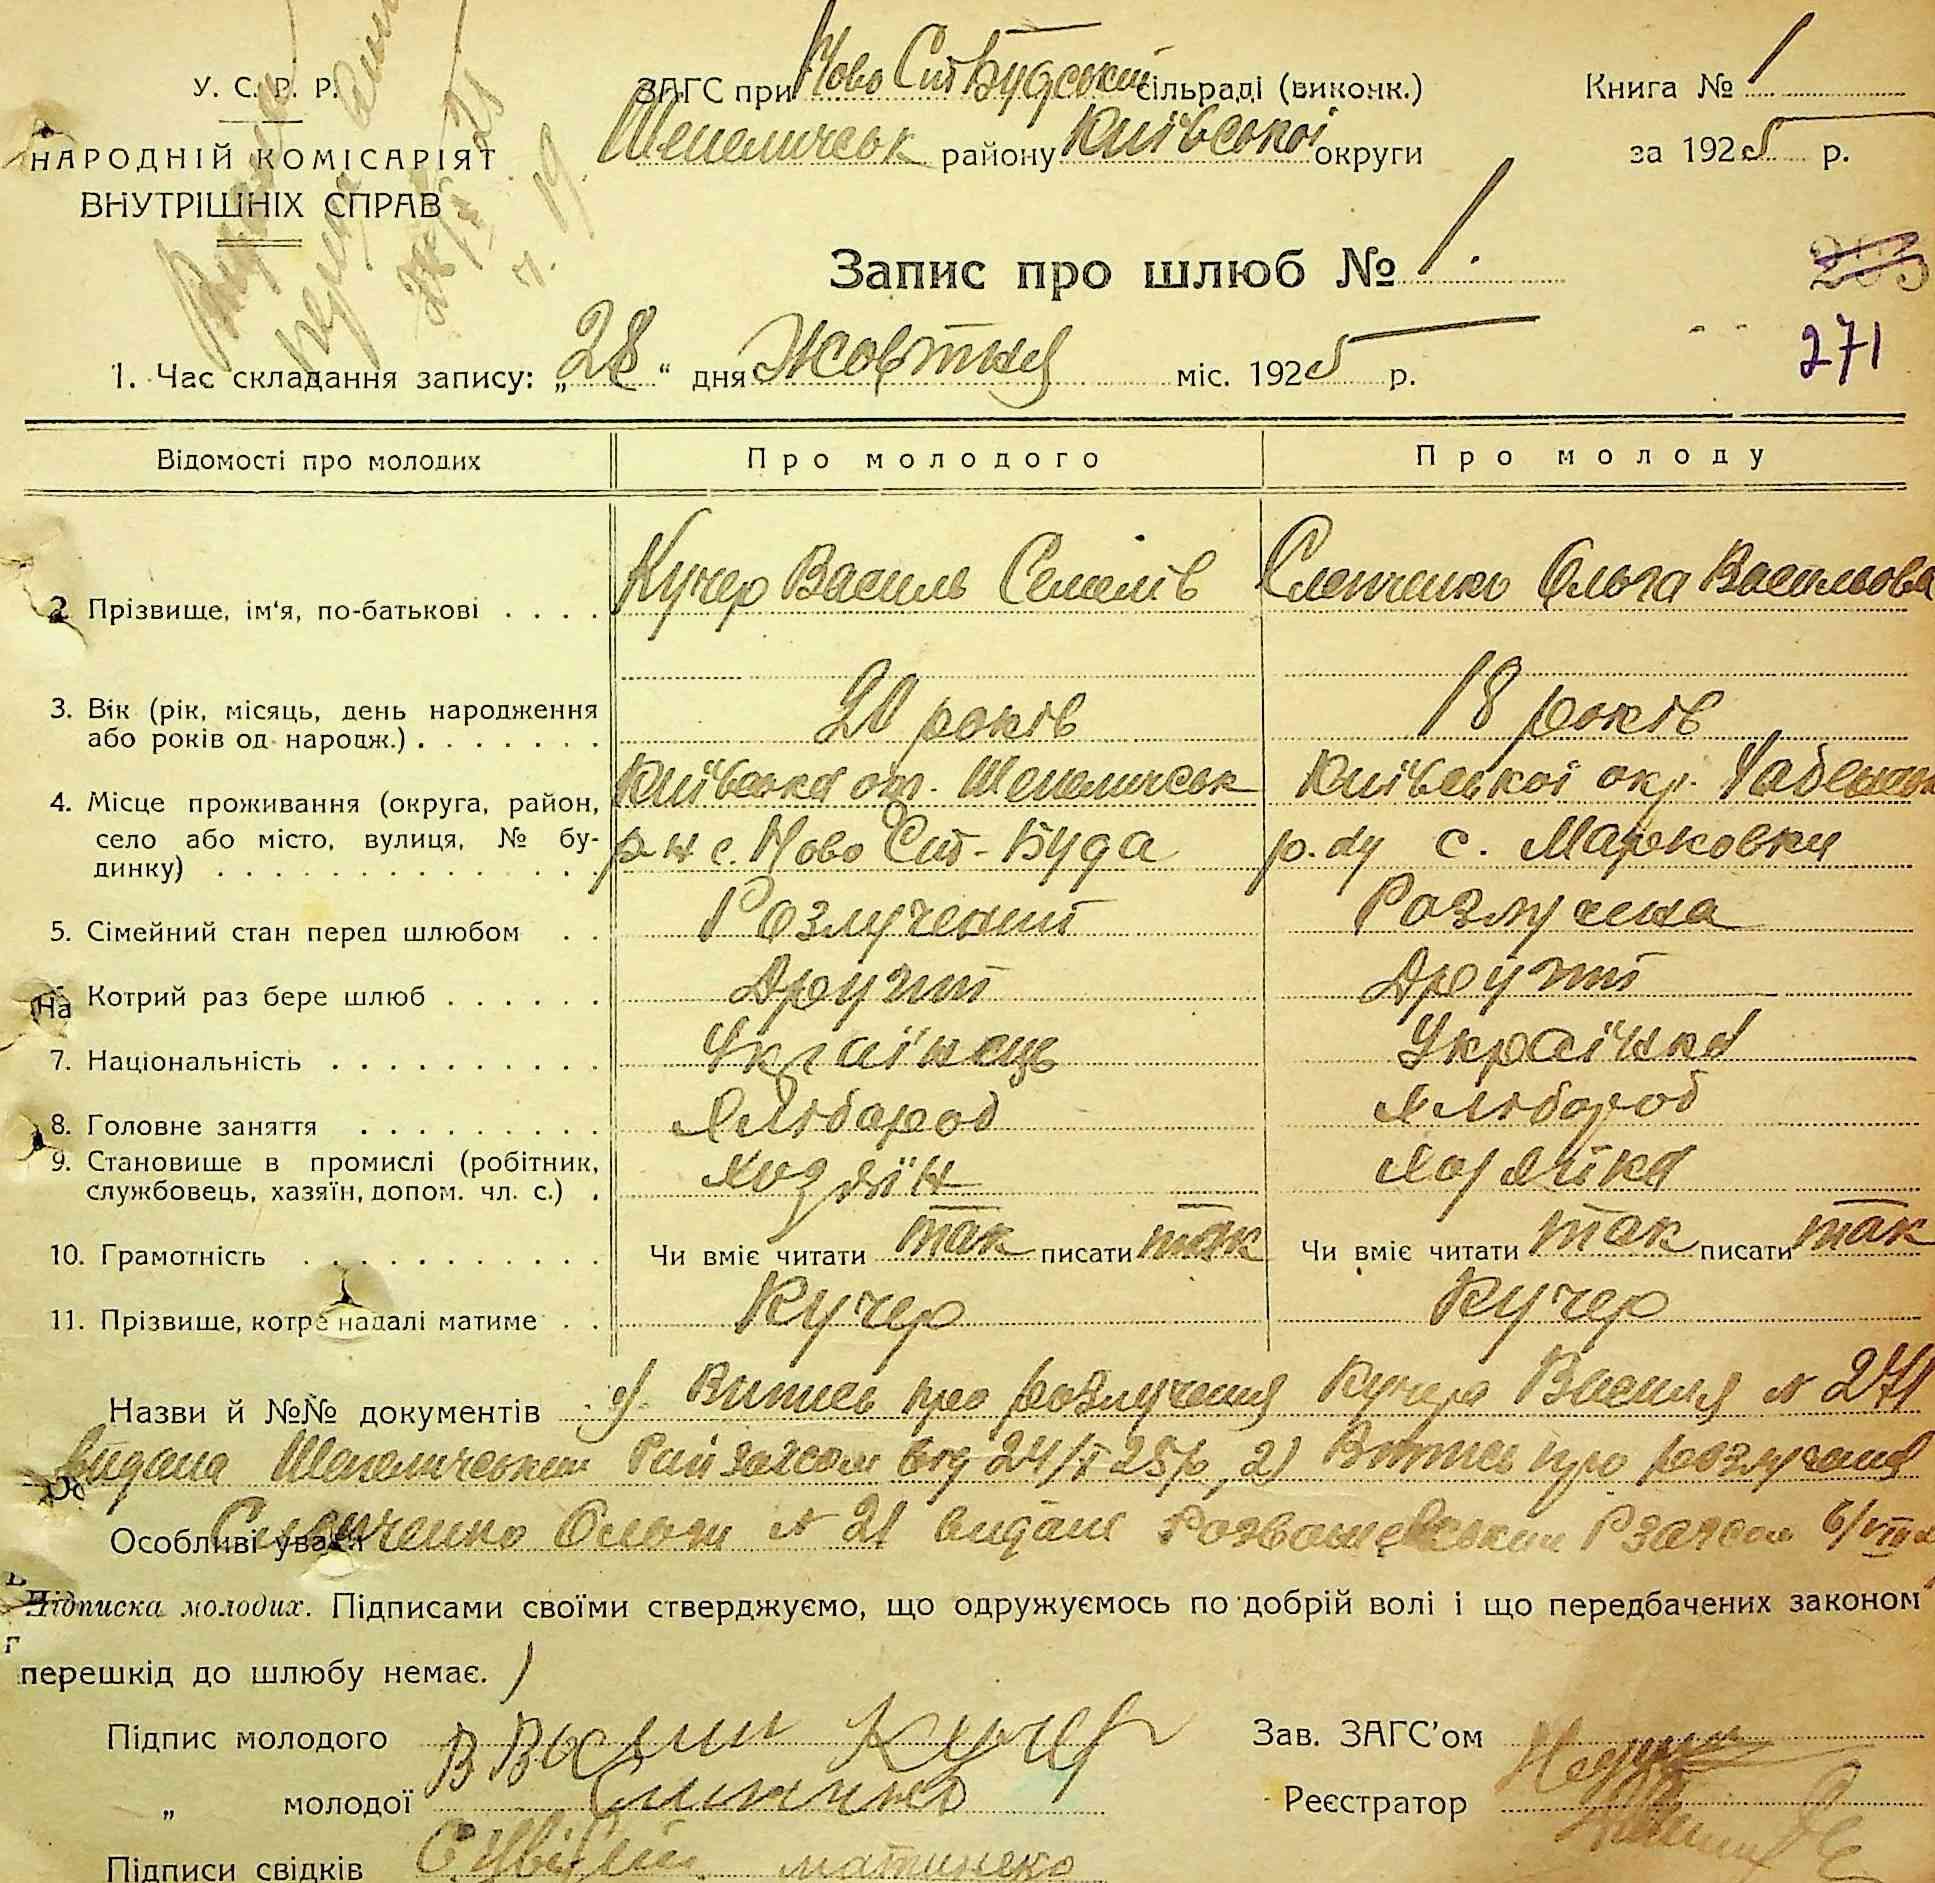 У. С. Р. Р.
НАРОДНІЙ КОМІСАРІЯТ
ВНУТРІШНІХ СПРАВ
ЗАГС при Ново Сит Будській сільраді (виконк.)
Шепеличськ району Київської округи
Книга № 1
за 1925 р.
Запис про шлюб № 1.
271
1. Час складання запису: „28“ дня Жовтня міс. 1925 р.
Відомості про молодих Про молодого Про молоду
2. Прізвище, ім‘я, по-батькові . . . . Кучер Василь Семенів Ольга Васильова
3. Вік (рік, місяць, день народження або років од народж.) . . . . . . . 20 років 18 років
4. Місце проживання (округа, район, Київська Шепеличськ Київської окр.
село або місто, вулиця, № бу- р-н с. Ново Сит-Буда с. Марковки
динку) . . . . . . . . . . . . . .
5. Сімейний стан перед шлюбом . . Розлучений Розлучена
Котрий раз бере шлюб . . . . . . Другий Другий
На
7. Національність . . . . . . . . . . Українець Українка
8. Головне заняття . . . . . . . . . Хлібороб Хлібороб
9. Становище в промислі (робітник,
службовець, хазяїн, допом. чл. с.) . Хозяїн Хозяйка
10. Грамотність . . . . . . . . . . . Чи вміє читати так писати так Чи вміє читати так писати так
11. Прізвище, котре надалі матиме . . Кучер Кучер
Назви й №№ документів 1) Витись про розлучення Кучера Василя № 271
видана Шепеличським Райзагсом від 24/X 25р, 2) Витись про розлучення
Особливі уваги Ольги № 21 видане Розважевським Рзагсом
Підписка молодих. Підписами своїми стверджуємо, що одружуємось по добрій волі і що передбачених законом
перешкід до шлюбу немає.
Підпис молодого Кучер
Зав. ЗАГС’ом
„ молодої
Реєстратор
Підписи свідків